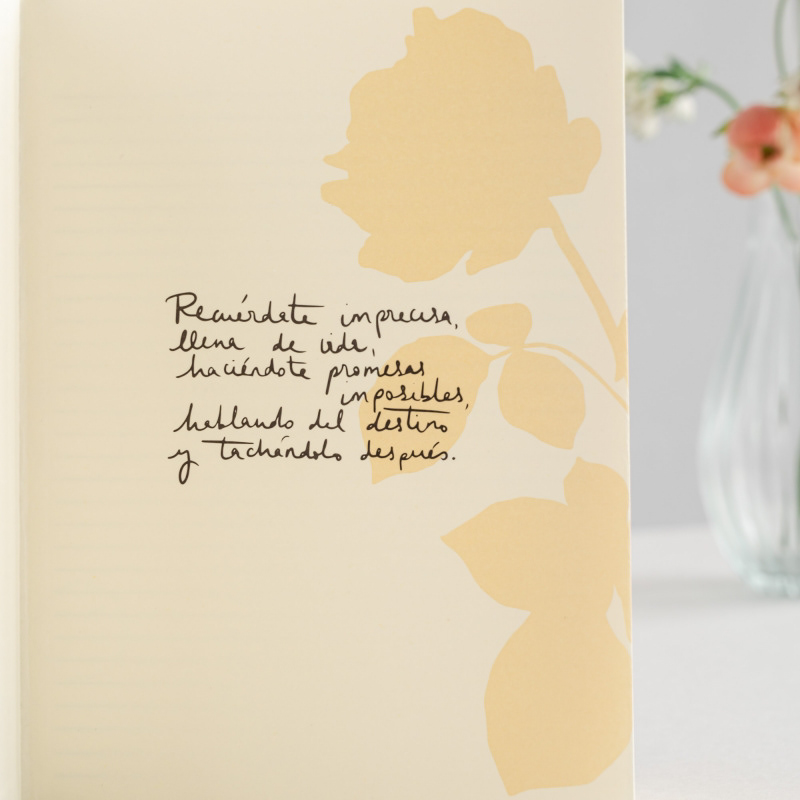 Recuérdate imprecisa,
llena de vida,
haciéndote promesas
imposibles,
hablando del destino
y tachándolo después.